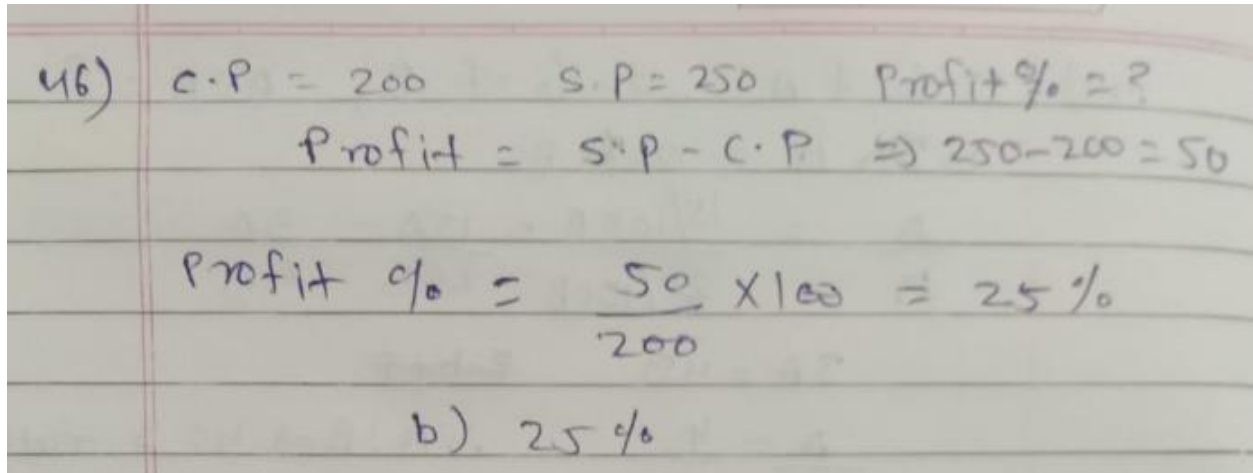 46) C.P = 200 S.P = 250 Profit % = ?
Profit = S.P - C.P. => 250-200 = 50
Profit % = 50/200 X100 = 25%
b) 25%